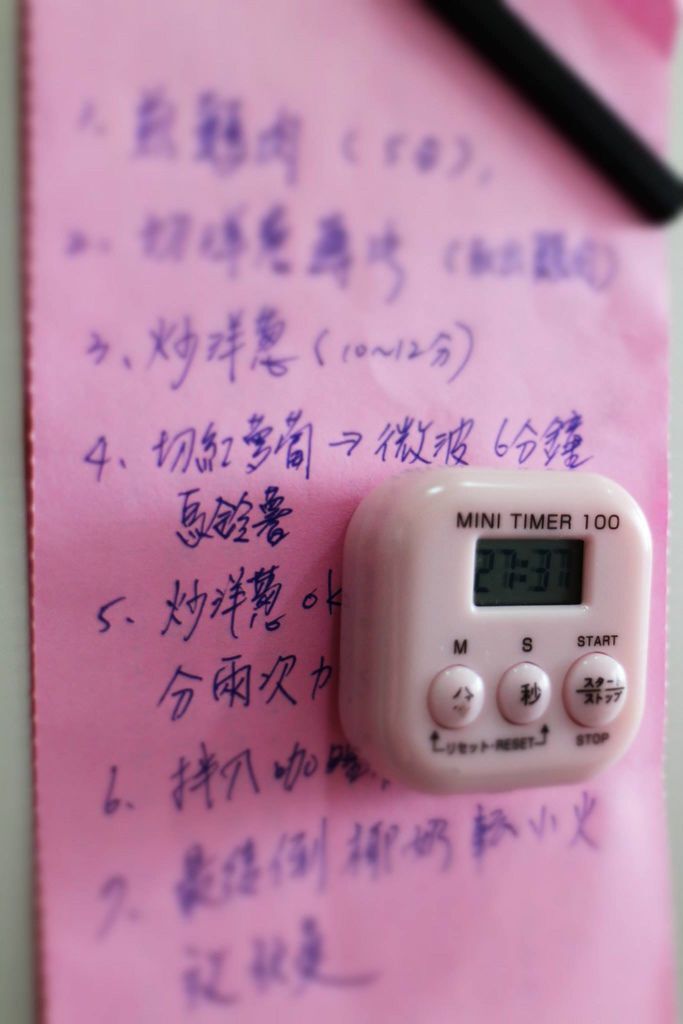 1. 煎雞肉（5分）.
2. 切洋蔥薄片（取出雞肉）
3、炒洋蔥（10~12分）
4、切紅蘿蔔→微波 6分鐘
馬鈴薯
5、炒洋蔥 ok
分兩次加
6、拌入咖哩
7、最後倒椰奶轉小火
MINI TIMER 100
27:37
M S START
分 秒 スタート
ストップ
リセット・RESET STOP